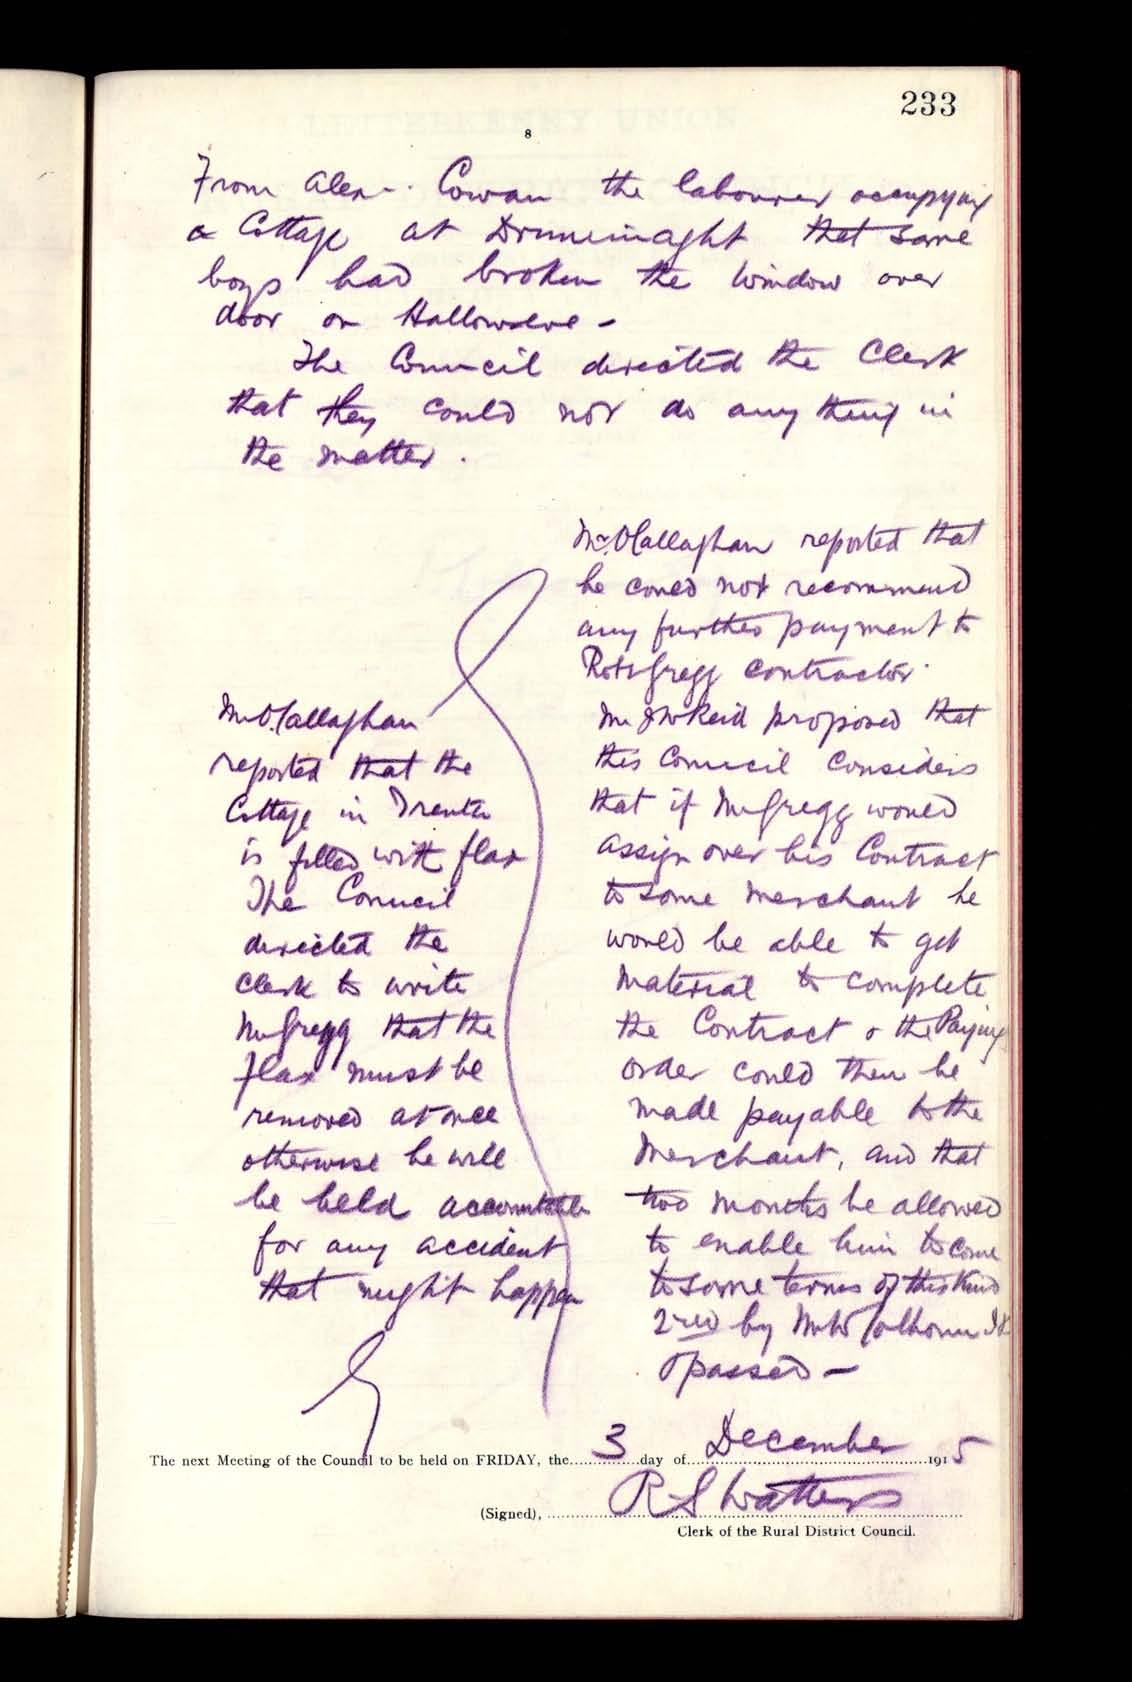 233
8
From Alex. Cowan the labourer occupying
a Cottage at Drumenaght that some
boys had broken the window over
door on Halloweve -
The Council directed the Clerk
that they could not do anything in
the matter.
Mr. O'Callaghan reported that
he could not recommend
any further payment to
Robt Gregg contractor.
Mr J W Reid proposed that
this Council considers
that if Mr Gregg would
assign over his Contract
to some merchant he
would be able to get
material to complete
the Contract & the Paying
order could then be
made payable to the
Merchant, and that
two months be allowed
to enable him to come
to some terms of this kind
2nd by Mr W Colhoun
& passed -
Mr O'Callaghan
reported that the
Cottage in Trenta
is filled with flax
The Council
directed the
Clerk to write
Mr Gregg that the
flax must be
removed at once
otherwise he will
be held accountable
for any accident
that might happen
The next Meeting of the Council to be held on FRIDAY, the 3 day of December 1915
(Signed), R S Watters
Clerk of the Rural District Council.